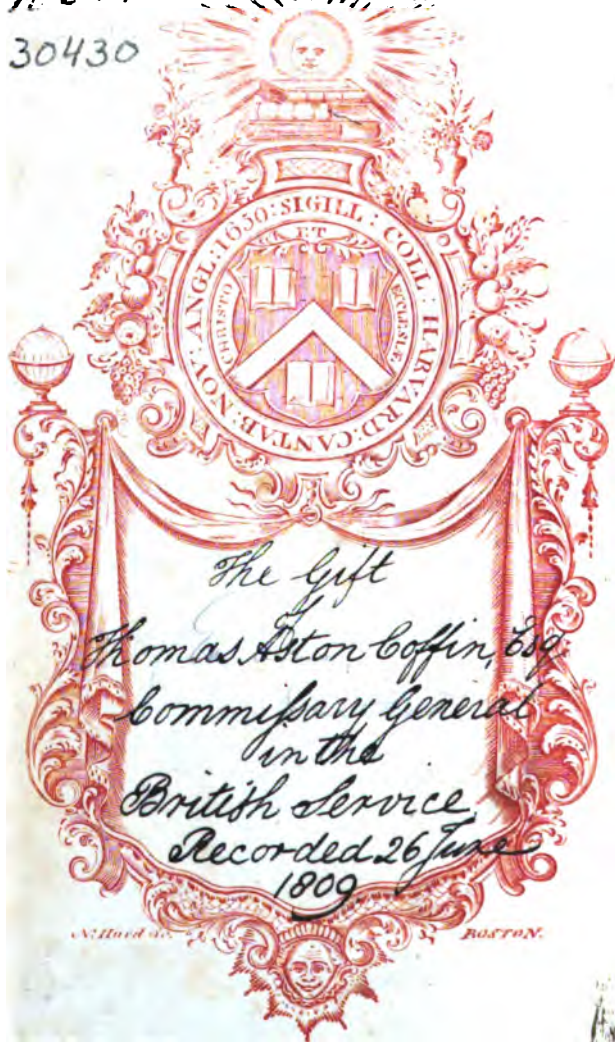 30430
SIGILL: COLL: HARVARD: CANTAB: NOV: ANGL: 1650:
CHRISTO ET ECCLESIÆ
The Gift
of
Thomas Aston Coffin, Esq.
Commiſsary General
in the
British Service,
Recorded 26 June
1809
N. Hurd
BOSTON.